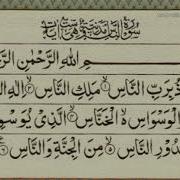 سُوْرَةُ النَّاسِ مَدَنِيَّةٌ وَّهِيَ سِتُّ اٰيَاتٍ
اللهِ الرَّحْمٰنِ الرَّ
ذُ بِرَبِّ النَّاسِ ۙ مَلِكِ النَّاسِ ۙ اِلٰهِ
الْوَسْوَاسِ ۙ الْخَنَّاسِ ۙ الَّذِيْ يُوَسْوِ
دُوْرِ النَّاسِ ۙ مِنَ الْجِنَّةِ وَالنَّاسِ